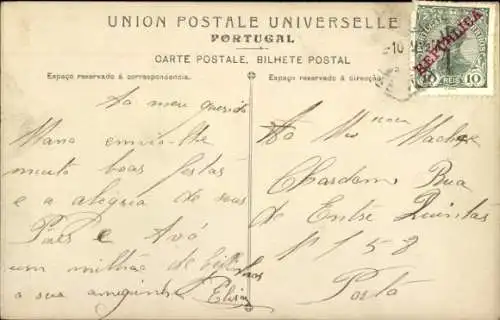 UNION POSTALE UNIVERSELLE
PORTUGAL
CARTE POSTALE, BILHETE POSTAL
Espaço reservado á correspondencia.
Espaço reservado á direcção
REPUBLICA
REIS 10
Ao meu querido
Mano envio-lhe
muito boas festas
e a alegria de seus
Paes e Avó
um milhão de
a sua amiguinha Elisa
Ao
Chardom Rua
de Entre Quintas
nº 158
Porto